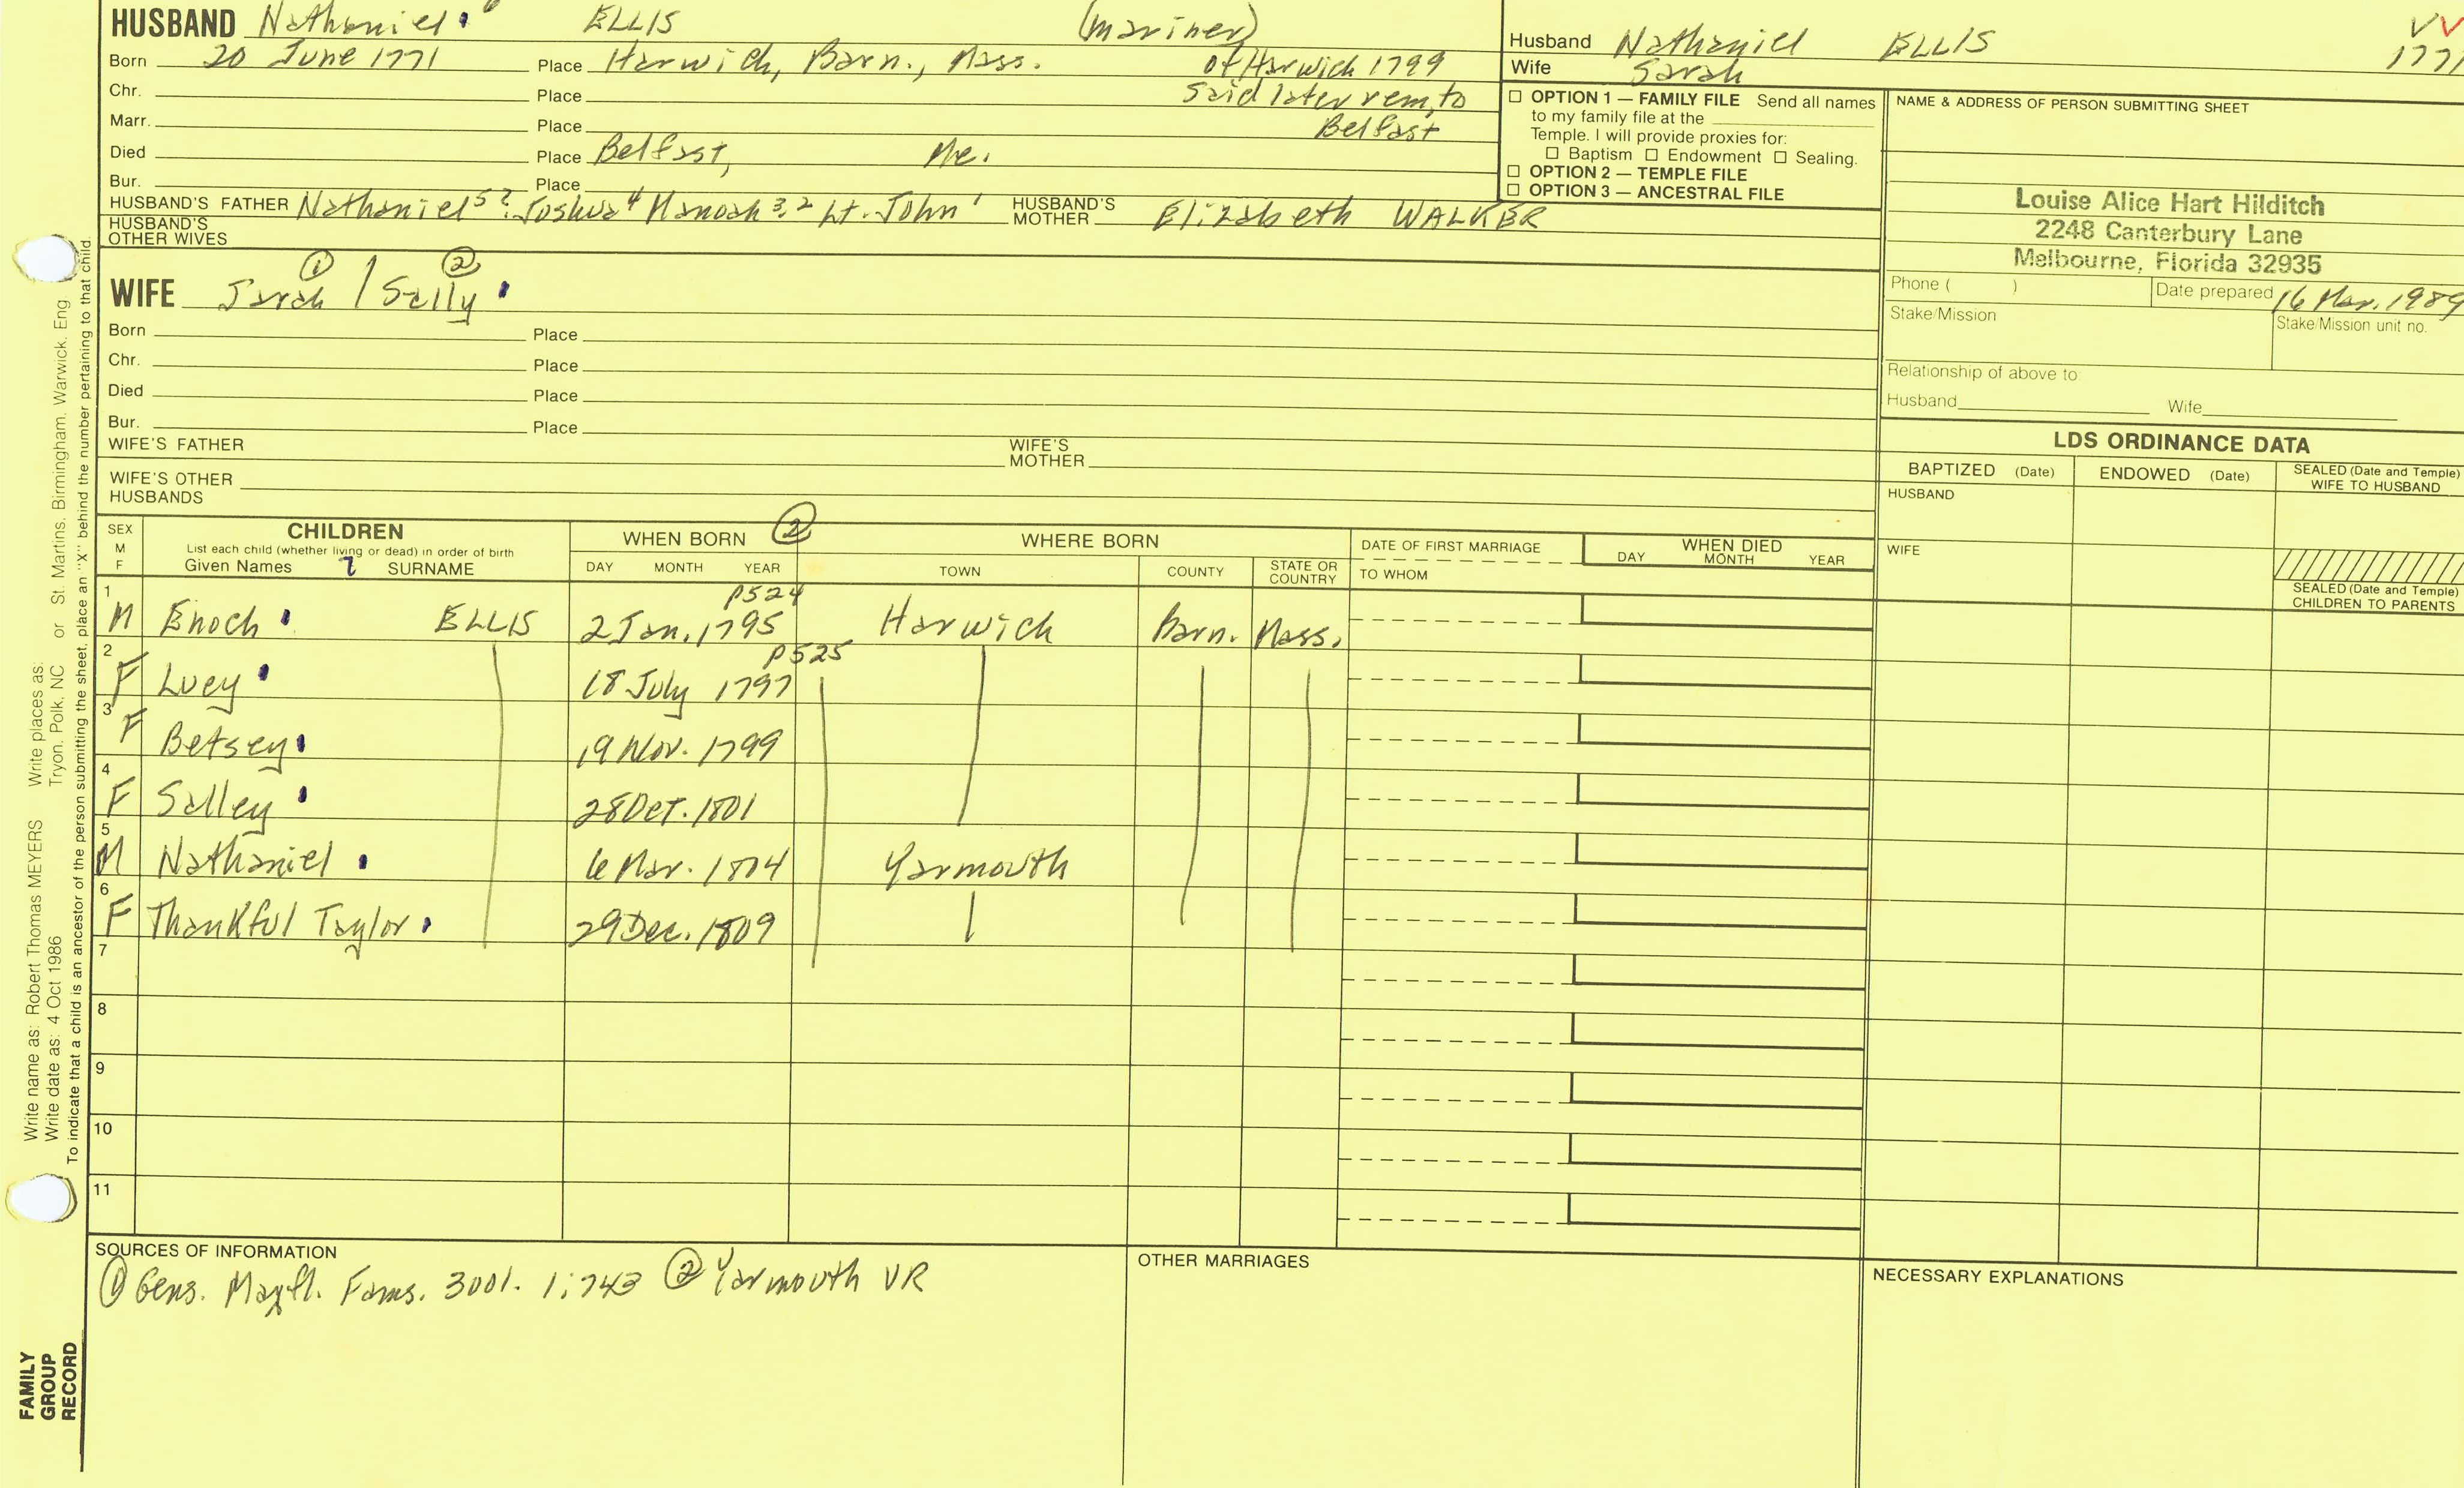 HUSBAND Nathaniel 6 ELLIS (mariner)
Born 20 June 1771 Place Harwich, Barn., Mass. of Harwich 1799
Chr. Place said later rem. to
Marr. Place Belfast
Died Place Belfast, Me.
Bur. Place
HUSBAND'S FATHER Nathaniel 5? Joshua 4 Manoah 3,2 Lt. John 1 HUSBAND'S MOTHER Elizabeth WALKER
HUSBAND'S OTHER WIVES
Husband Nathaniel ELLIS
Wife Sarah
VV
177
OPTION 1 — FAMILY FILE Send all names
to my family file at the
Temple. I will provide proxies for:
Baptism Endowment Sealing.
OPTION 2 — TEMPLE FILE
OPTION 3 — ANCESTRAL FILE
NAME & ADDRESS OF PERSON SUBMITTING SHEET
Louise Alice Hart Hilditch
2248 Canterbury Lane
Melbourne, Florida 32935
Phone ( ) Date prepared 16 Mar. 1989
Stake/Mission Stake/Mission unit no.
Relationship of above to:
Husband Wife
WIFE Sarah ① / Sally ②
Born Place
Chr. Place
Died Place
Bur. Place
WIFE'S FATHER WIFE'S MOTHER
WIFE'S OTHER HUSBANDS
LDS ORDINANCE DATA
BAPTIZED (Date) ENDOWED (Date) SEALED (Date and Temple) WIFE TO HUSBAND
HUSBAND
WIFE
SEALED (Date and Temple) CHILDREN TO PARENTS
SEX M F CHILDREN List each child (whether living or dead) in order of birth Given Names 7 SURNAME WHEN BORN ② DAY MONTH YEAR WHERE BORN TOWN COUNTY STATE OR COUNTRY DATE OF FIRST MARRIAGE TO WHOM WHEN DIED DAY MONTH YEAR
p524
1 M Enoch ELLIS 2 Jan. 1795 Harwich Barn. Mass.
p525
2 F Lucy 18 July 1797
3 F Betsey 19 Nov. 1799
4 F Salley 28 Oct. 1801
5 M Nathaniel 6 Mar. 1804 Yarmouth
6 F Thankful Taylor 29 Dec. 1809
7
8
9
10
11
SOURCES OF INFORMATION
① Gens. Mayfl. Fams. 3001. 1:743 ② Yarmouth VR
OTHER MARRIAGES
NECESSARY EXPLANATIONS
Write name as: Robert Thomas MEYERS Write places as: Tryon, Polk, NC or St. Martins, Birmingham, Warwick, Eng
Write date as: 4 Oct 1986
To indicate that a child is an ancestor of the person submitting the sheet, place an "X" behind the number pertaining to that child.
FAMILY
GROUP
RECORD